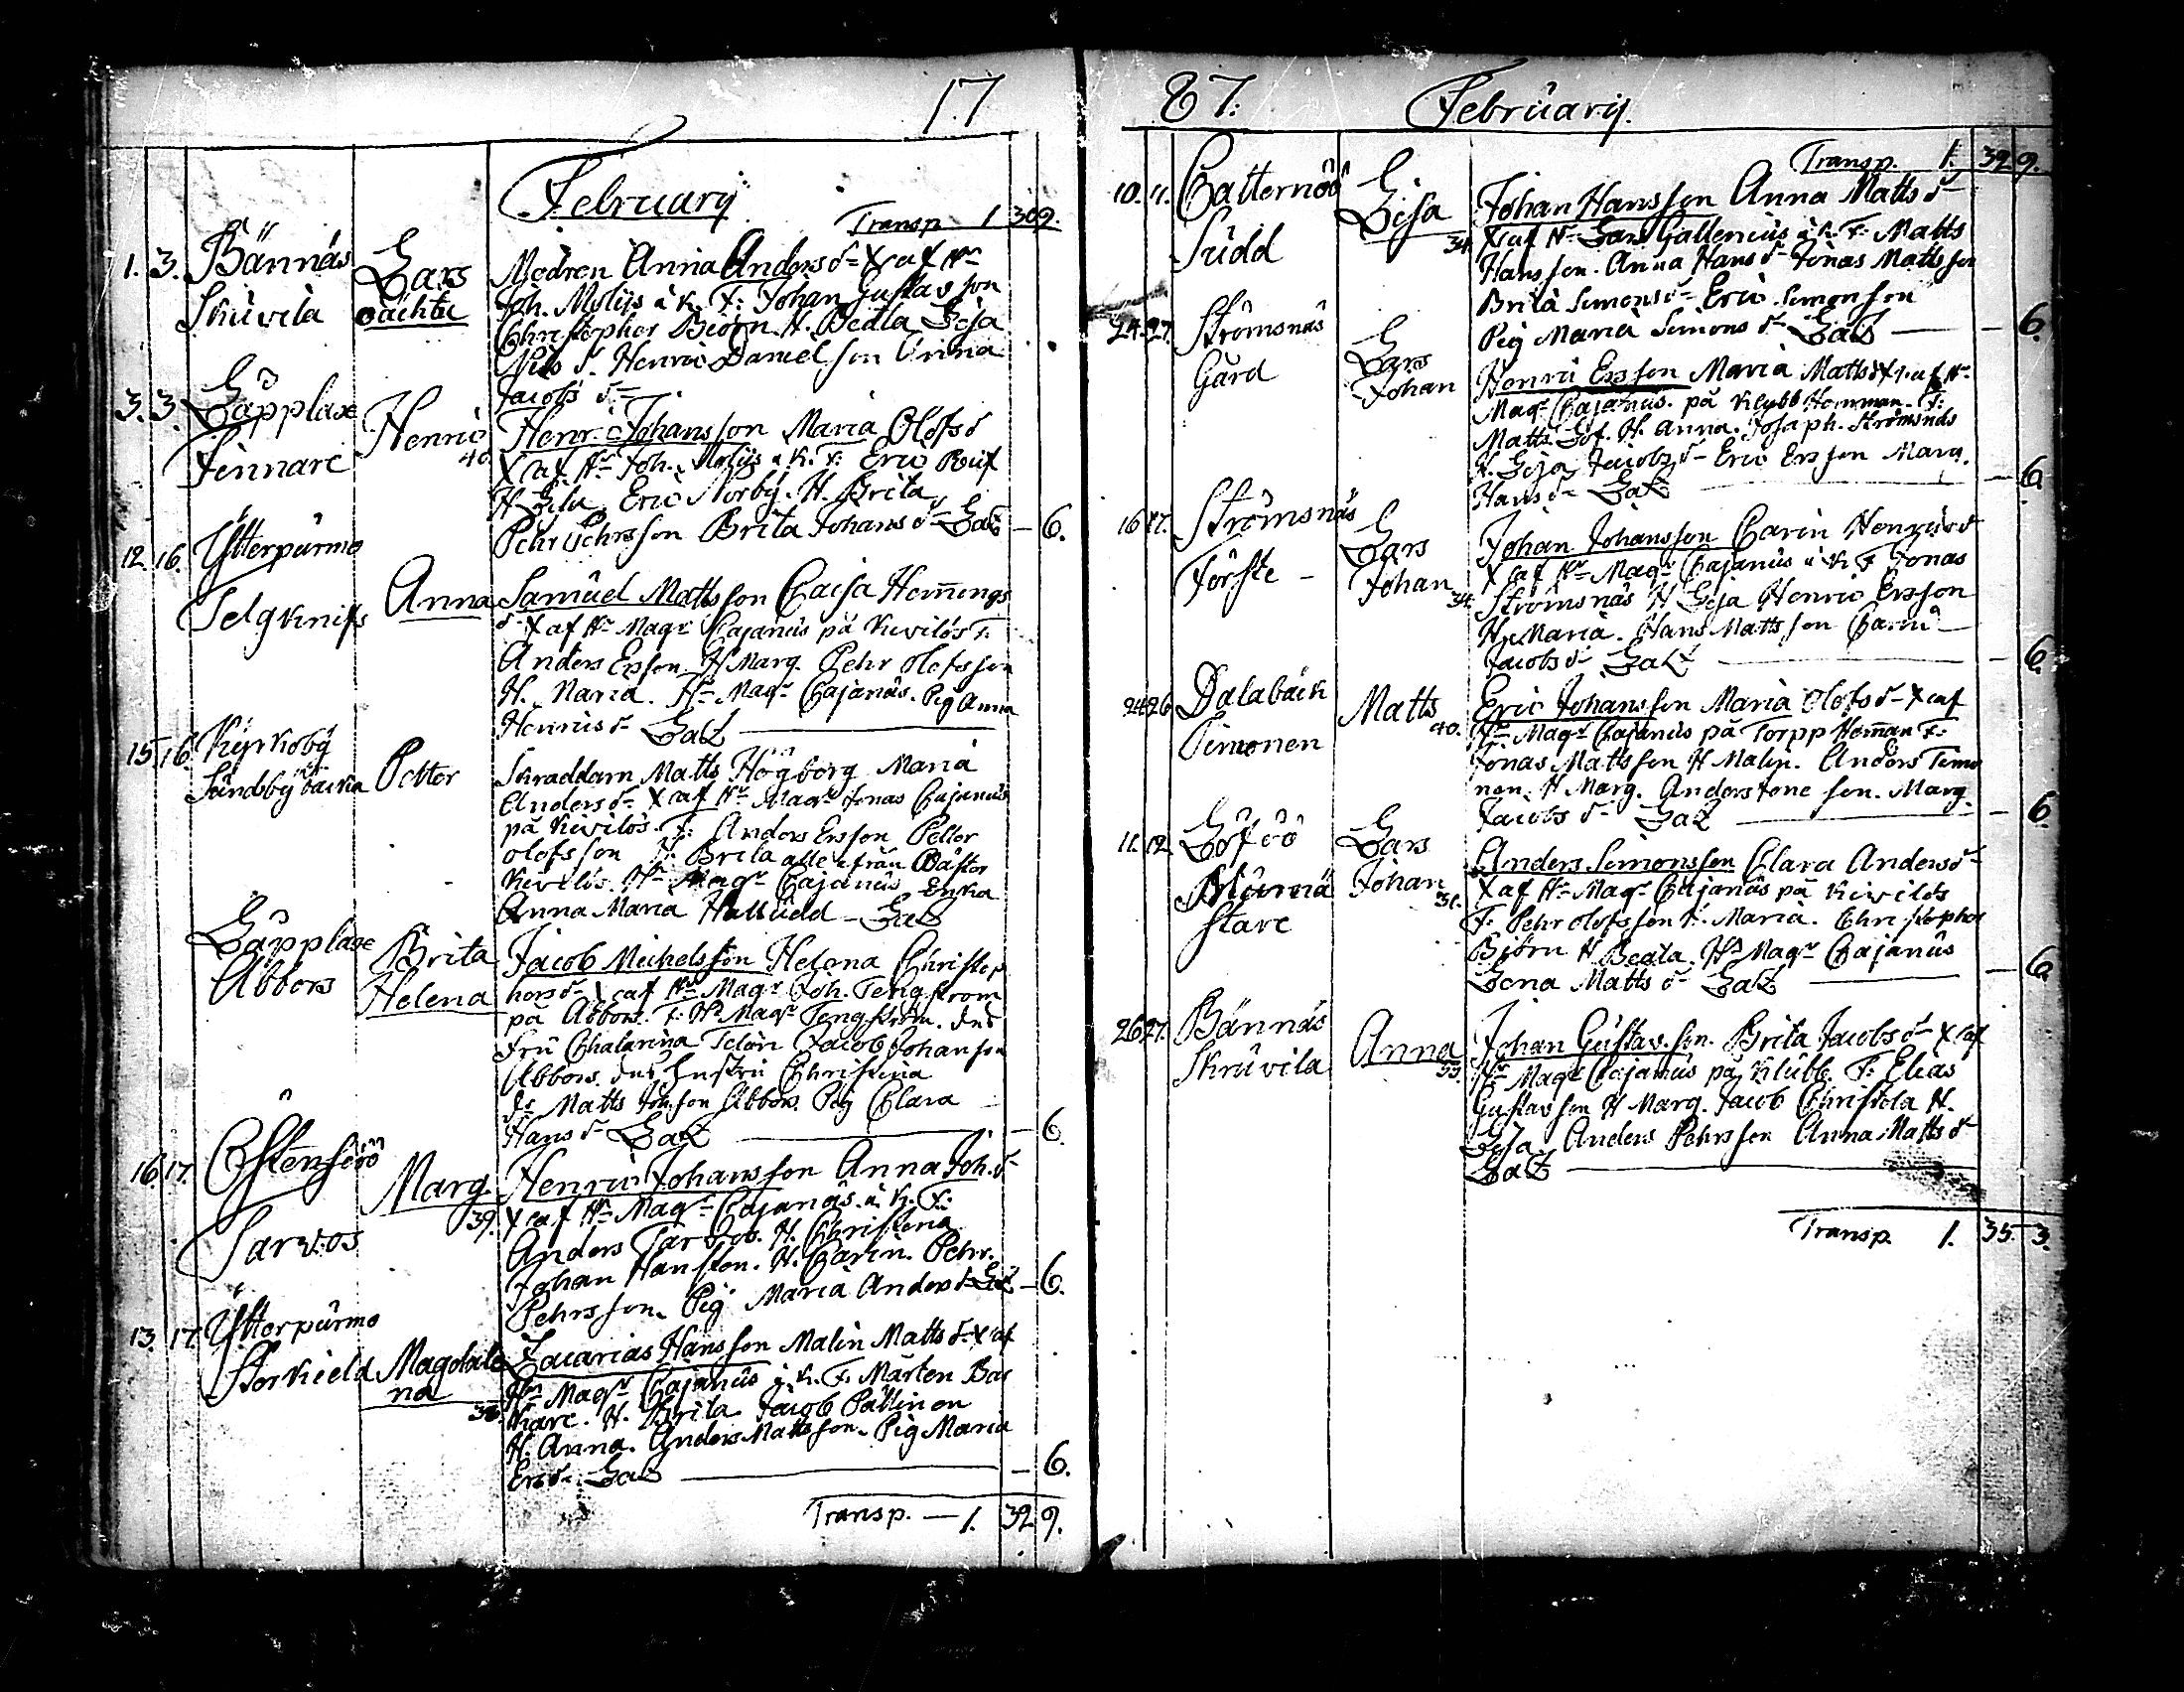 17
February
Transp. 1 30 9.
1. 3. Bännäs
Skruvila
Lars
oächta
Modren Anna Anders d. X af Hr
Joh. Molijs i K. F: Johan Gustavsson
Christopher Biörn H. Beata Lisa
Nils d. Henric Danielsson Anna
Jacobs d.
3. 3. Lapplax
Finnare
Henric
40.
Henr. Johansson Maria Olofs d
X af Hr Joh. Molijs i K. F: Eric Reif
H. Eric Norby. H. Brita
Pehr Pehrsson Brita Johans d. — 6.
12. 16. Ytterpurmo
Telgknifs
Anna
Samuel Mattsson Caisa Hemmings
d. X af Hr Magr Cajanus på Kivilös F:
Anders Ersson H Marg. Pehr Olofsson
H. Maria. Hr Magr Cajanus. Pig Anna
Henrics d.
15. 16. Kyrkoby
Sundsbybacka
Petter
Skraddarn Matts Högborg Maria
Anders d. X af Hr Magr Jonas Cajanus
på Kivilös. F: Anders Ersson Petter
Olofsson H. Brita alle från
Kivilös. Hr Magr Cajanus Enkia
Anna Maria
Lapplax
Abbors
Brita
Helena
Jacob Michelsson Helena Christop
hers d. X af Hr Magr Joh. Tengstrom
på Abbors. F: Hr Magr Tengström. dess
Fru Chatarina Jacob Johansson
Abbors. dess hustru Christina
Matts Abbors Pig Clara
Hans d. — 6.
16. 17. Östensöö
Sarvos
Marg.
39.
Henric Johansson Anna Joh. d
X af Hr Magr Cajanus. i K. F:
Anders Sarvos. H. Christina
Johan Hansson. H. Carin. Pehr.
Pehrsson. Pig Maria Anders d. — 6.
13. 17. Ytterpurmo
Storkield
Magdale
na
Zacarias Hansson Malin Matts d. X af
Hr Magr Cajanus i K. F. Mårten Bas
kare. H. Brita. Jacob Pallinen
H. Anna. Anders Mattsson. Pig Maria
Ers d. — 6.
Transp. — 1. 32. 9.
87.
February.
Transp. 1. 32. 9.
10. 11. Catternöö
Sudd
Lisa
34.
Johan Hansson Anna Matts d
X af Hr Lars Gallenius i K. F: Matts
Hansson. Anna Hans d. Jonas Mattsson
Brita Simons d. Eric Simonsson
Pig Maria Simons d. — 6.
24. 27. Strömsnäs
Gård
Lars
Johan
Henric Ersson Maria Matts d X af Hr
Magr Cajanus. på Klubb Hemman. F:
Matts H. Anna. Josaph. Strömsnäs
H. Lisa Jacobs d. Eric Ersson Marg.
Hans d. — 6.
16. 17. Strömsnäs
Förste —
Lars
Johan
34.
Johan Johansson Carin Henrics d
X af Hr Magr Cajanus i K F Jonas
Strömsnäs H Lisa Henric Ersson
H. Maria. Hans Mattsson Carin
Jacobs d. — 6.
24. 26. Dalaback
Timonen
Matts
40.
Eric Johansson Maria Olofs d. X af
Hr Magr Cajanus på Torpp Hemman F:
Jonas Mattsson H Malin. Anders Timo
nen. H Marg. Anders Jonesson. Marg.
Jacobs d. — 6.
11. 12. Löföö
stare
Lars
Johan
31.
Anders Simonsson Clara Anders d.
X af Hr Magr Cajanus på Kivilös
F: Pehr Olofsson H. Maria. Christopher
Björn H Beata. Hr Magr Cajanus
Lena Matts d. — 6.
26. 27. Bännäs
Skruvila
Anna
33.
Johan Gustavsson. Brita Jacobs d. X af
Hr Magr Cajanus på Klubb. F: Elias
Gustavsson H Marg. Jacob Christola H.
Lisa Anders Pehrsson Anna Matts d
Transp. 1. 35. 3.